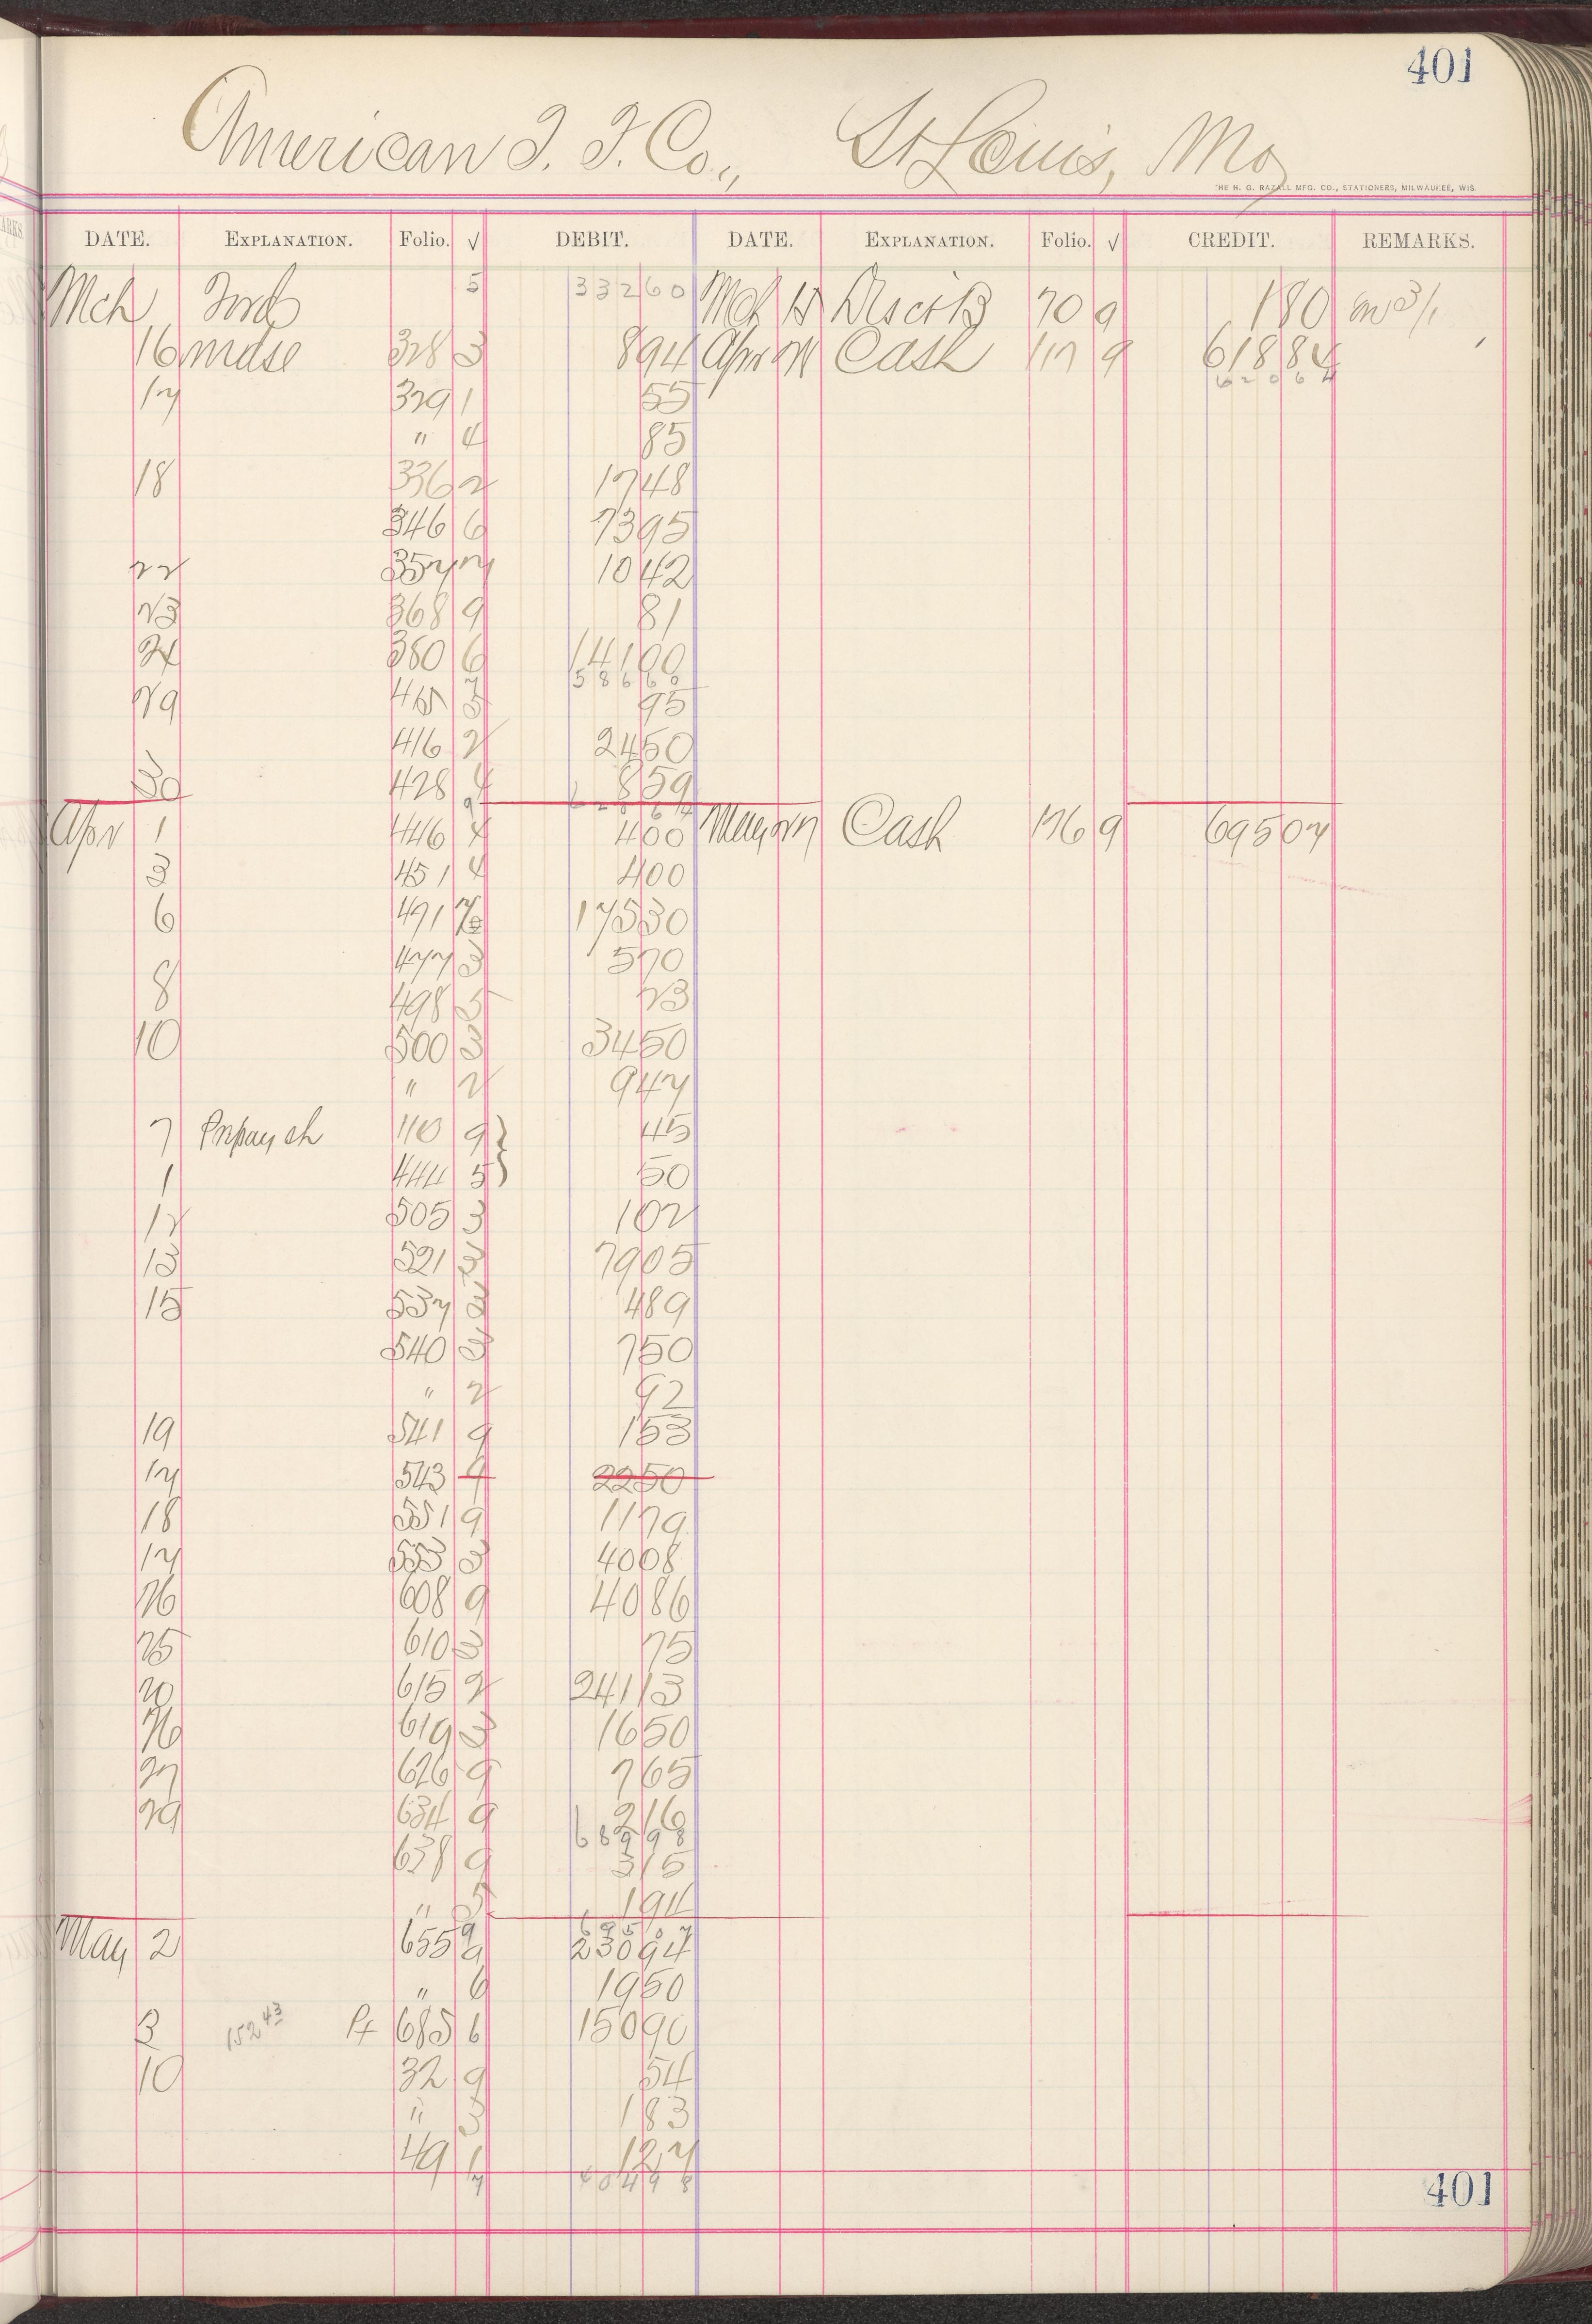 401
American T. T. Co., St Louis, Mo
THE H. G. RAZALL MFG. CO., STATIONERS, MILWAUKEE, WIS.
DATE. EXPLANATION. Folio. √ DEBIT. DATE. EXPLANATION. Folio. √ CREDIT. REMARKS.
Mch Ford 5 33260 Mch 15 Disct B 70 9 180 on 3/1
16 mdse 328 3 894 Apr 21 Cash 117 9 61884
62064
17 329 1 55
" 4 85
18 336 2 1748
346 6 7395
22 357 2 1042
23 368 9 81
24 380 6 14100
58660
29 415 3 95
416 2 2450
30 428 4 859
62064
Apr 1 446 4 400 May 27 Cash 176 9 69507
3 451 4 400
6 491 17530
477 3 570
8 498 5 23
10 500 3 3450
" 2 947
7 Prepay ch 110 9 45
1 444 5 50
12 505 3 102
13 521 3 7905
15 537 3 489
540 3 750
" 2 92
19 541 9 153
17 543 9 2250
18 551 9 1179
17 553 3 4008
26 608 9 4086
25 610 3 75
20 615 2 24113
26 619 3 1650
27 626 9 765
29 634 9 216
68998
638 9 315
" 5 194
69507
May 2 655 9 23094
" 6 1950
3 152 43 Pt 685 6 15090
10 32 9 54
" 3 183
49 1 127
40498
401